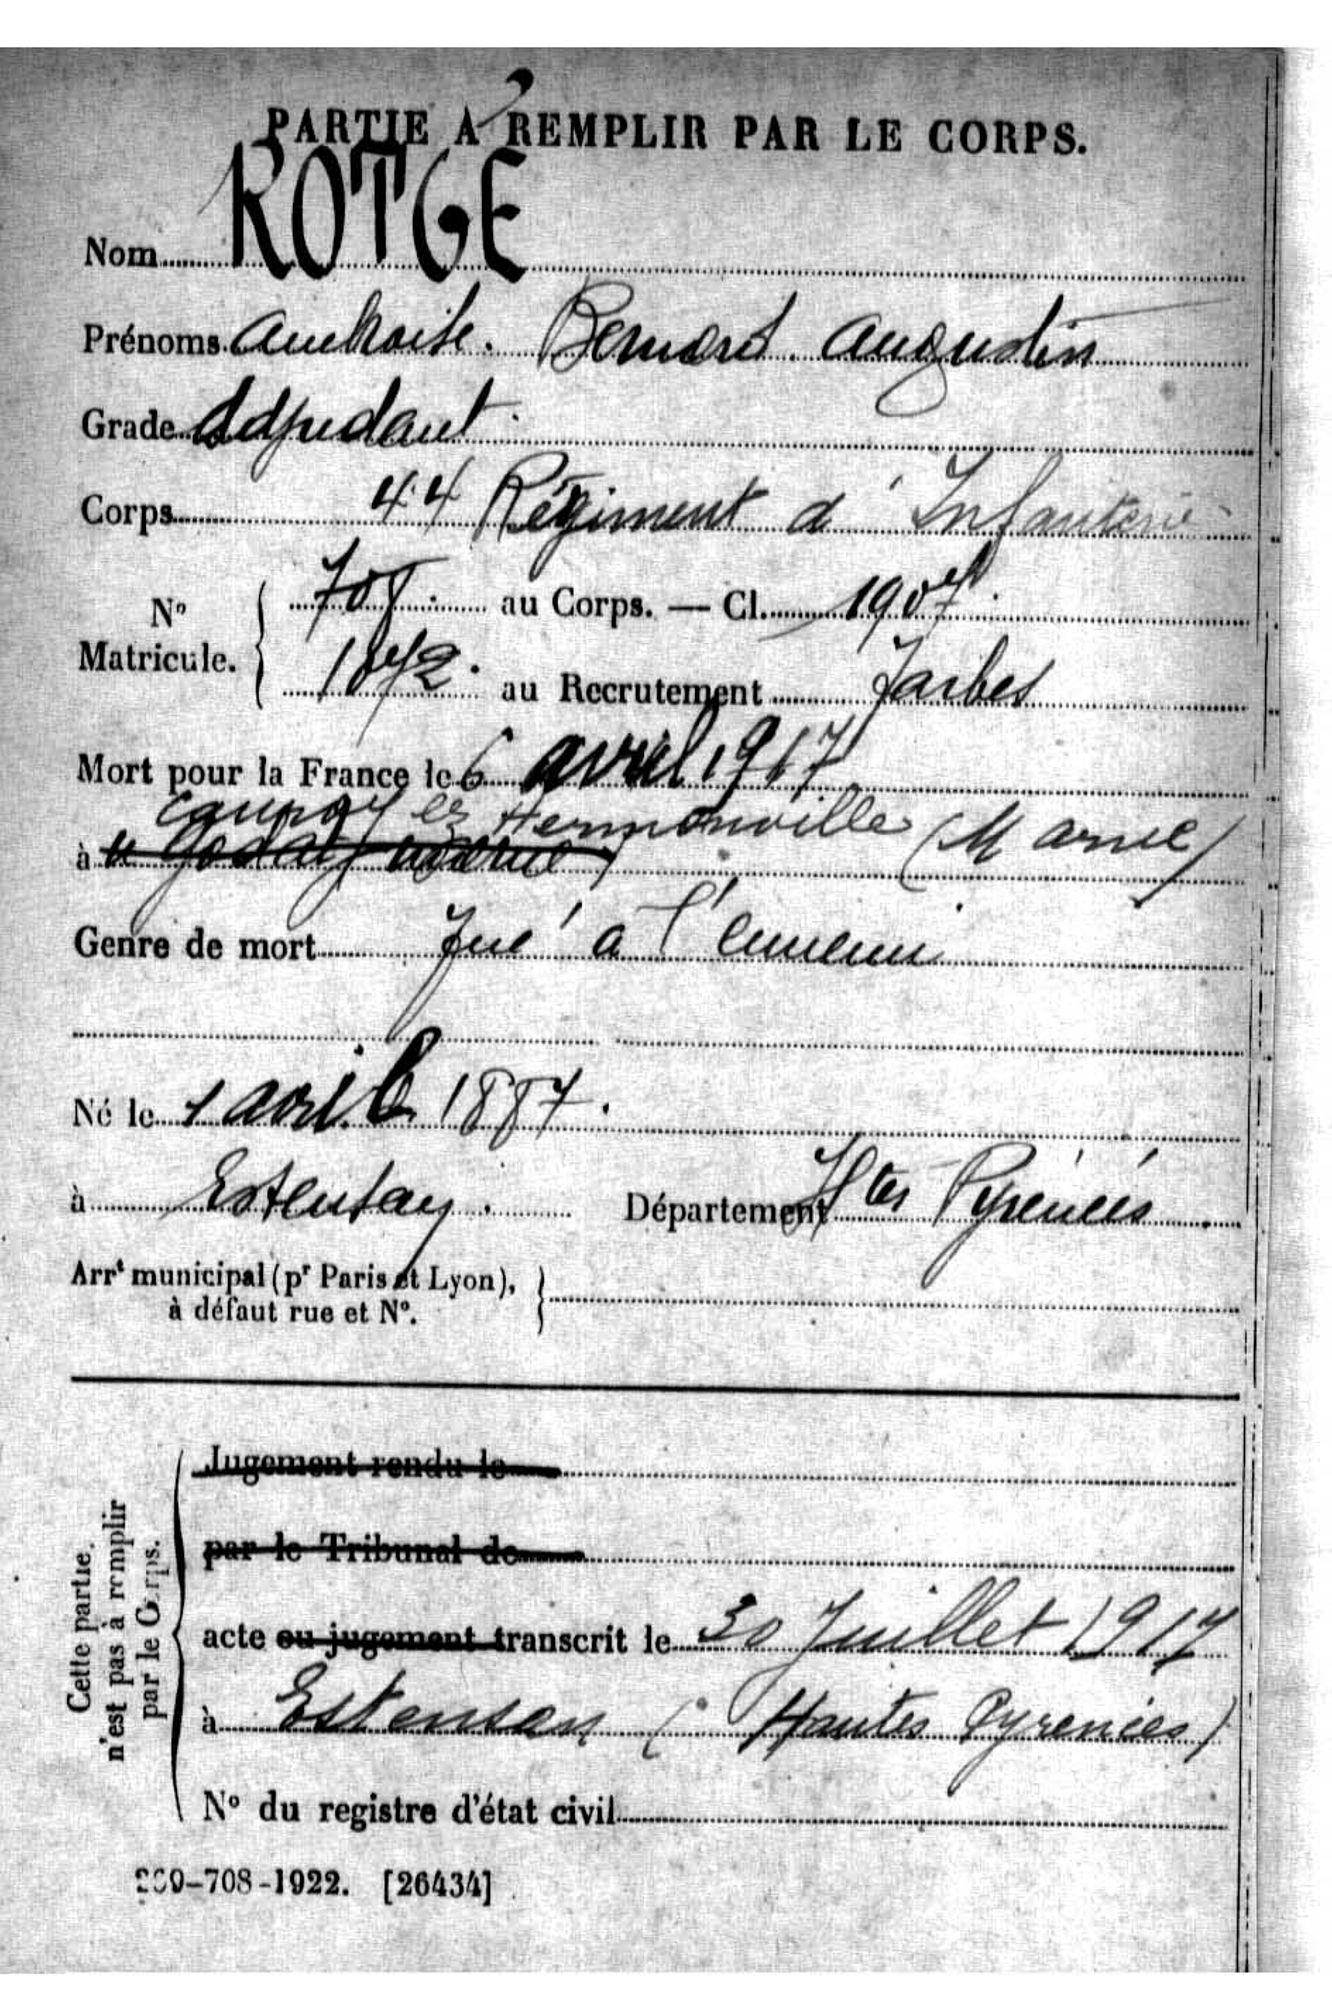 PARTIE A REMPLIR PAR LE CORPS.
Nom ROTGE
Prénoms Ambroise. Bernard Augustin
Grade Adjudant
Corps 44 Régiment d'Infanterie
N° Matricule. 708. au Corps. — Cl. 1907.
1872. au Recrutement Tarbes
Mort pour la France le 6 avril 1917
Cauroy les Hermonville (Marne)
à
Genre de mort Tué à l'ennemi
Né le 1 avril 1887.
à Estensan. Département Htes Pyrénées
Arrt municipal (pr Paris et Lyon),
à défaut rue et N°.
Cette partie n'est pas à remplir par le Corps.
Jugement rendu le
par le Tribunal de
acte ou jugement transcrit le 30 Juillet 1917
à Estensan (Hautes Pyrénées)
N° du registre d'état civil
-708-1922. [26434]